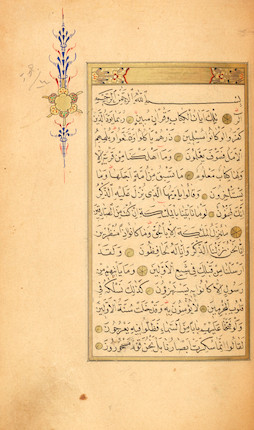 بِسْمِ اللهِ الرَّحْمٰنِ الرَّحِيمِ
الٓرٰ تِلْكَ اٰيَاتُ الْكِتَابِ وَقُرْاٰنٍ مُبِينٍ رُبَمَا يَوَدُّ الَّذِينَ
كَفَرُوا لَوْ كَانُوا مُسْلِمِينَ ذَرْهُمْ يَأْكُلُوا وَيَتَمَتَّعُوا وَيُلْهِهِمُ
الْاَمَلُ فَسَوْفَ يَعْلَمُونَ وَمَا اَهْلَكْنَا مِنْ قَرْيَةٍ اِلَّا
وَلَهَا كِتَابٌ مَعْلُومٌ مَا تَسْبِقُ مِنْ اُمَّةٍ اَجَلَهَا وَمَا
يَسْتَأْخِرُونَ وَقَالُوا يَا اَيُّهَا الَّذِي نُزِّلَ عَلَيْهِ الذِّكْرُ
اِنَّكَ لَمَجْنُونٌ لَوْ مَا تَأْتِينَا بِالْمَلٰئِكَةِ اِنْ كُنْتَ مِنَ الصَّادِقِينَ
مَا نُنَزِّلُ الْمَلٰئِكَةَ اِلَّا بِالْحَقِّ وَمَا كَانُوا اِذًا مُنْظَرِينَ
اِنَّا نَحْنُ نَزَّلْنَا الذِّكْرَ وَاِنَّا لَهُ لَحَافِظُونَ وَلَقَدْ
اَرْسَلْنَا مِنْ قَبْلِكَ فِي شِيَعِ الْاَوَّلِينَ وَمَا يَأْتِيهِمْ مِنْ
رَسُولٍ اِلَّا كَانُوا بِهِ يَسْتَهْزِؤُنَ كَذٰلِكَ نَسْلُكُهُ فِي
قُلُوبِ الْمُجْرِمِينَ لَا يُؤْمِنُونَ بِهِ وَقَدْ خَلَتْ سُنَّةُ الْاَوَّلِينَ
وَلَوْ فَتَحْنَا عَلَيْهِمْ بَابًا مِنَ السَّمَاءِ فَظَلُّوا فِيهِ يَعْرُجُونَ
لَقَالُوا اِنَّمَا سُكِّرَتْ اَبْصَارُنَا بَلْ نَحْنُ قَوْمٌ مَسْحُورُونَ